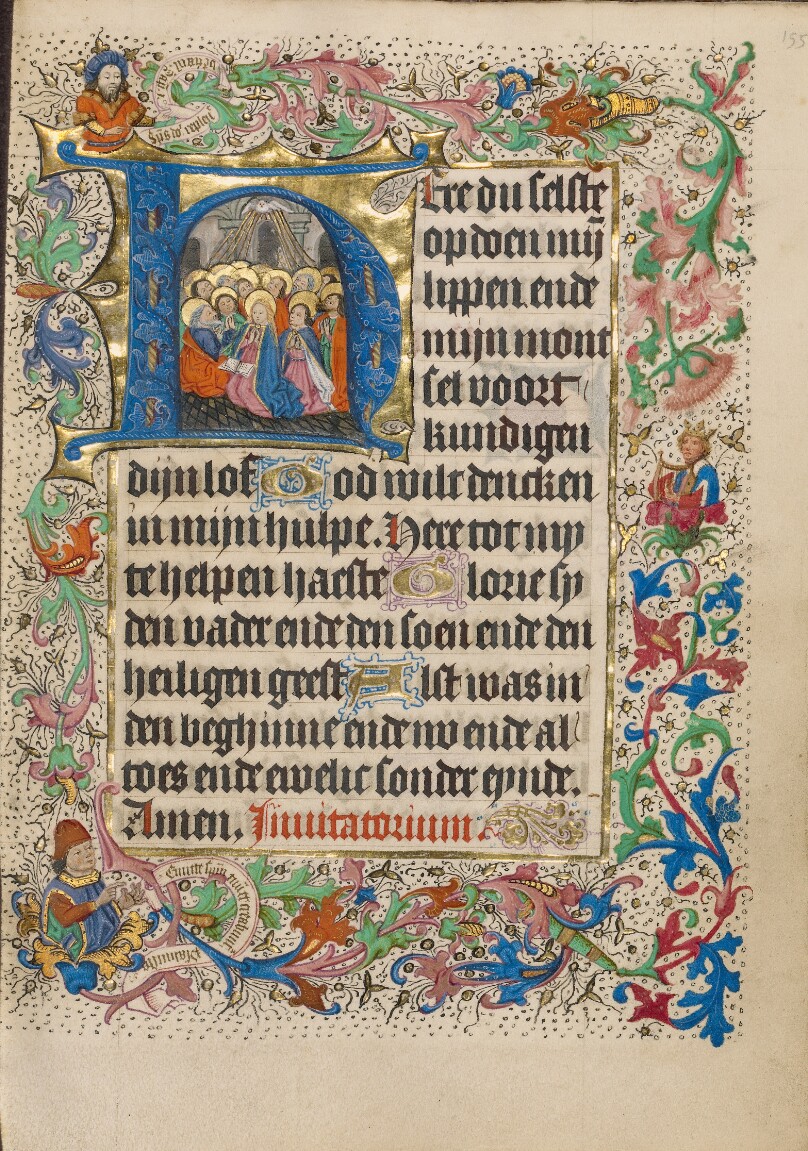 Here du selste
op doen mij̄
lippen ende
mijn mont
sel voort
kundigen
dijn lof God wilt dencken
in mijn hulpe. Here tot my
te helpen haeste Glorie sy
den vader ende den soen ende den
heiligen geest Alst was in
den beghinne ende nv ende al
toes ende ewelic sonder eynde.
Amen. Inuitatorium.
155